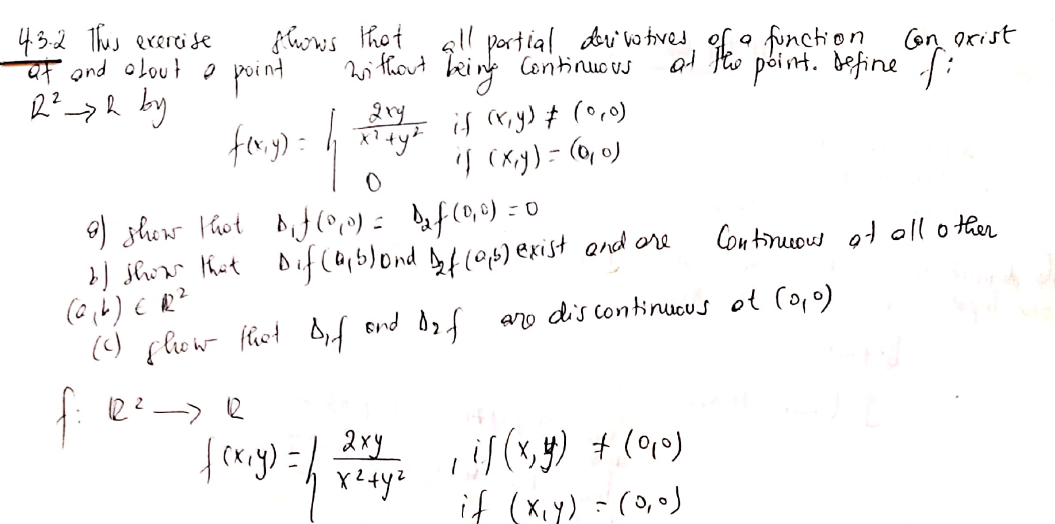 4.3.2 This exercise shows that all partial derivatives of a function can exist
at and about a point without being continuous at the point. Define f:
R² → R by
f(x,y) = { 2xy / x²+y² if (x,y) ≠ (0,0)
0 if (x,y) = (0,0)
a) show that D₁f(0,0) = D₂f(0,0) = 0
b) show that D₁f(a,b) and D₂f(a,b) exist and are continuous at all other
(a,b) ∈ R²
(c) show that D₁f and D₂f are discontinuous at (0,0)
f: R² → R
f(x,y) = { 2xy / x²+y² , if (x,y) ≠ (0,0)
if (x,y) = (0,0)